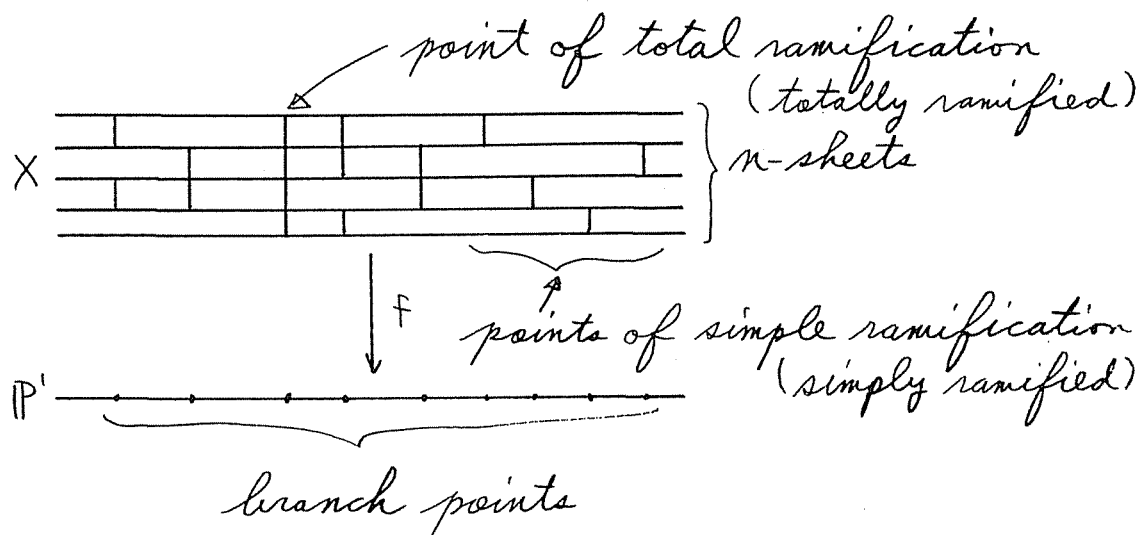 point of total ramification
(totally ramified)
X
n-sheets
f
points of simple ramification
(simply ramified)
P'
branch points